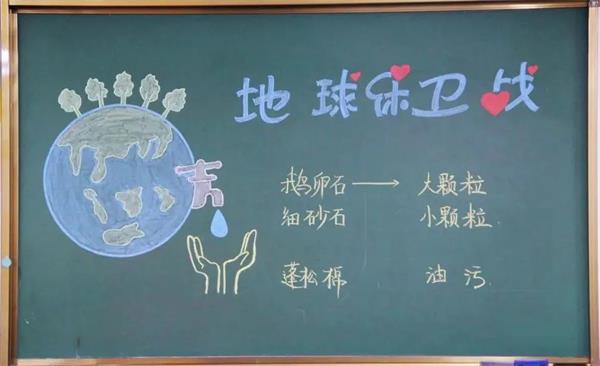 地球保卫战
鹅卵石 → 大颗粒
细砂石 小颗粒
蓬松棉 油污